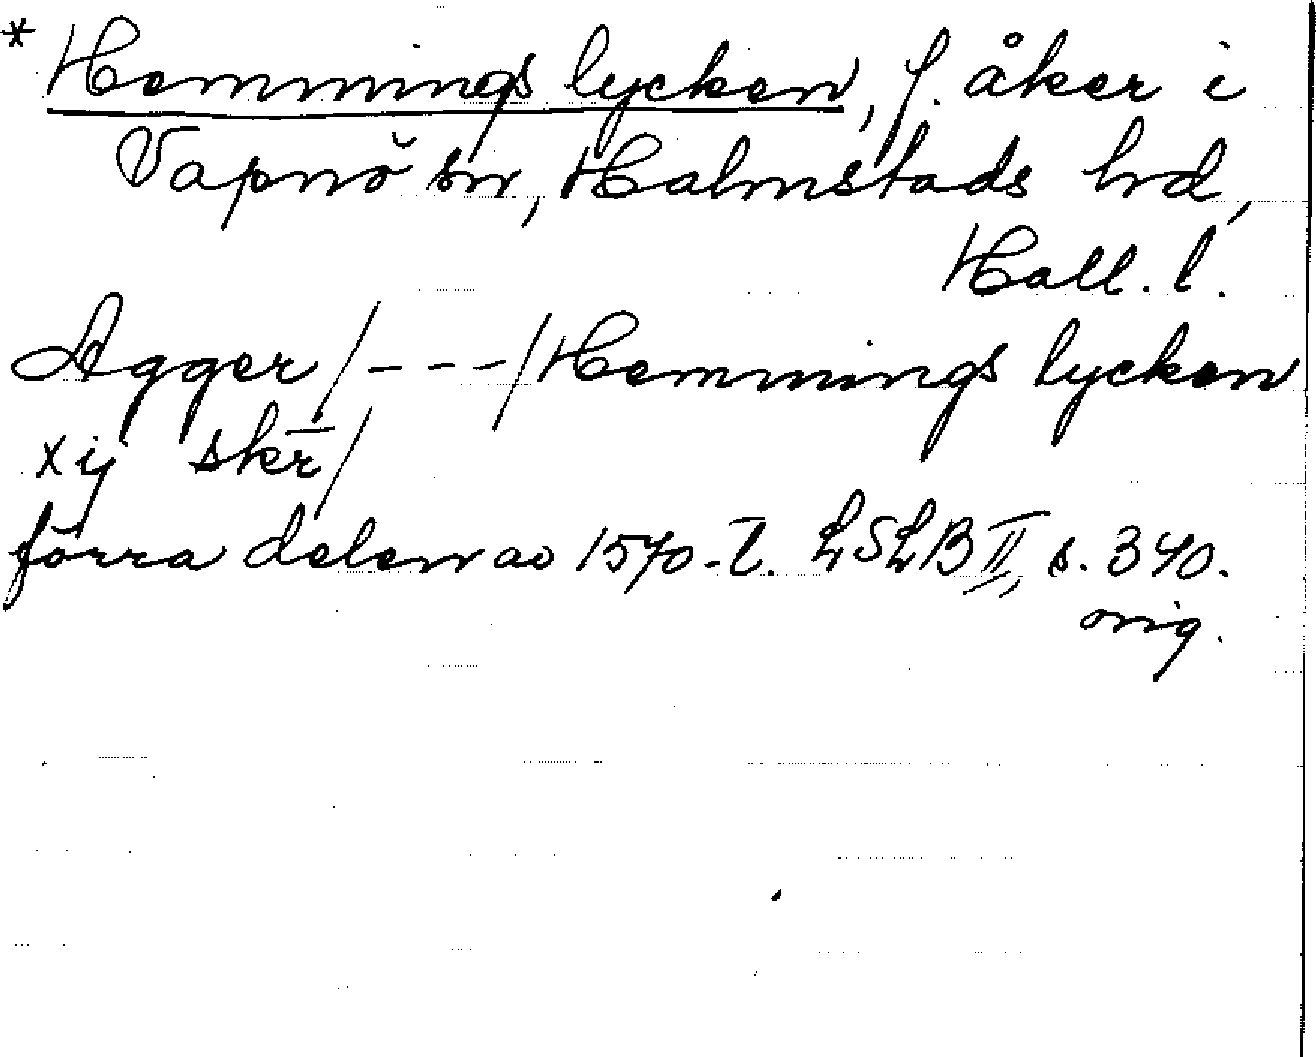 * Hemmings lycken, f. åker i
Vapnö sn, Halmstads hrd,
Hall. l.
Agger /---/ Hemmings lycken
xij skr̄ /
förra delen av 1570-t. LSLB II, s. 340.
orig.